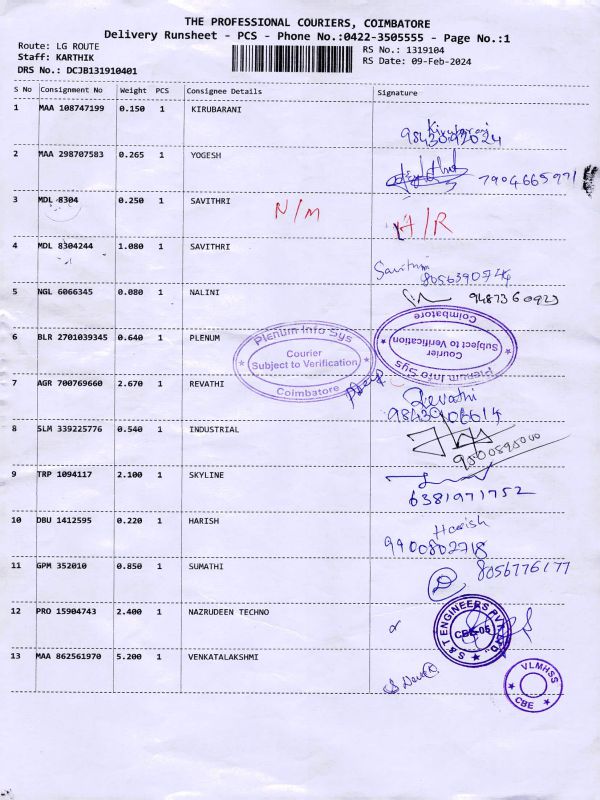 THE PROFESSIONAL COURIERS, COIMBATORE
Delivery Runsheet - PCS - Phone No.:0422-3505555 - Page No.:1
Route: LG ROUTE
RS No.: 1319104
Staff: KARTHIK
RS Date: 09-Feb-2024
DRS No.: DCJB131910401
S No Consignment No Weight PCS Consignee Details Signature
1 MAA 108747199 0.150 1 KIRUBARANI
Kirubarani
9843092024
2 MAA 298707583 0.265 1 YOGESH
7904665971
3 MDL 8304 0.250 1 SAVITHRI N/M A/R
4 MDL 8304244 1.080 1 SAVITHRI
Savitri
8056390744
5 NGL 6066345 0.080 1 NALINI 9487360923
6 BLR 2701039345 0.640 1 PLENUM
Plenum Info Sys
Courier
Subject to Verification
Coimbatore
Plenum Info Sys
Courier
Subject to Verification
Coimbatore
7 AGR 700769660 2.670 1 REVATHI
Revathi
8 SLM 339225776 0.540 1 INDUSTRIAL
9500595000
9 TRP 1094117 2.100 1 SKYLINE
6381971752
10 DBU 1412595 0.220 1 HARISH
Harish
9900802718
11 GPM 352010 0.850 1 SUMATHI
8056776177
12 PRO 15904743 2.400 1 NAZRUDEEN TECHNO
S & T ENGINEERS PVT. LTD.,
CBE-05
13 MAA 862561970 5.200 1 VENKATALAKSHMI
VLMHSS
CBE